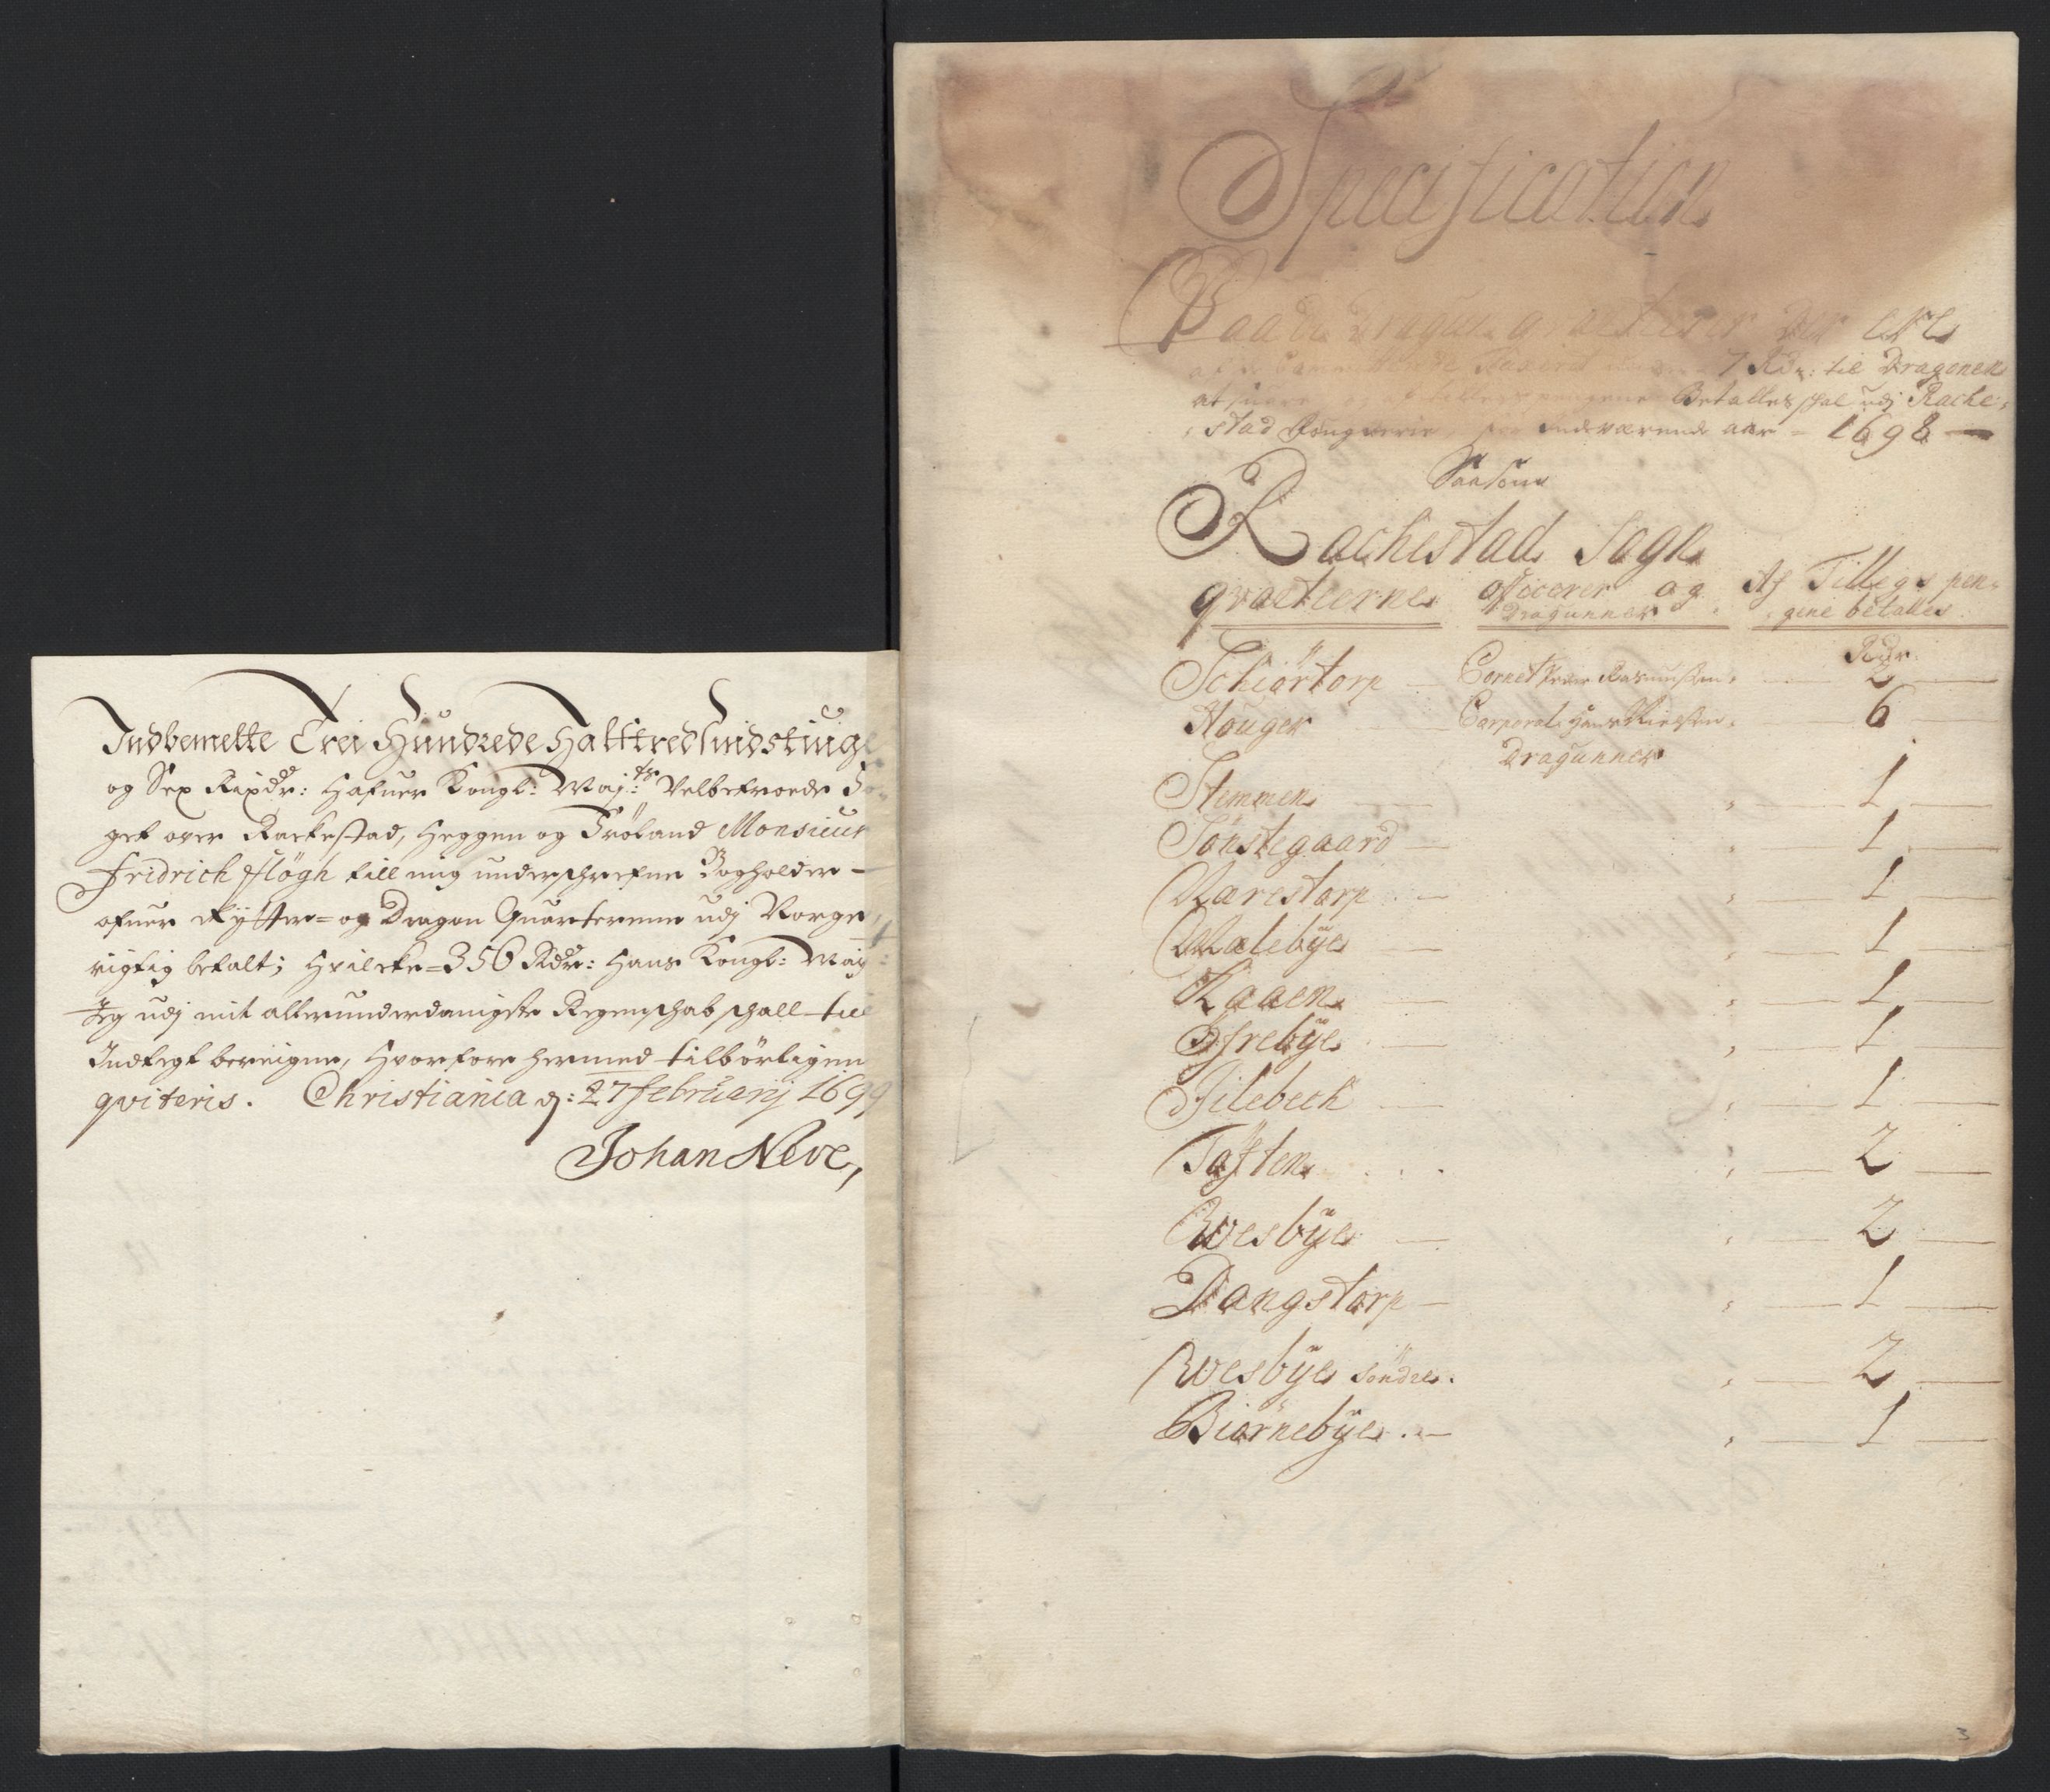 Indbemelte Trei Hundrede Halftredsindstiuge
og Sex Rixdr: Hafuer Kongl: Maj:ts Velbetroede Fo
get over Rackestad, Heggen og Fröland Monsieur
Fridrich Fløgh till mig underschrefne Bogholder
ofuer Rytter= og Dragon Quarterenne udj Norge,
rigtig betalt; Hvilcke = 356 Rdr: Hans Kongl: May:
Jeg udj mit allerunderdanigste Regenschab schall till
Indtegt beregne, Hvorfore hermed tilbörligen
qviteris. Christiania d: 27 februarij 1699
Johan Neve,
Specification
Paa de Dragon qvarterer Der
7 Rdr: til Dragonen
at Betalles schal udj Rache=
stad Fougderie, for Indeværende aar = 1698
Saasom
Rachestad Sogn
qvarteerne officerer og Af Tillegs pen=
Dragunner gene betalles
Rdr.
Schiörtorp Cornet Peder Rasmussen 2
Houger Corporal Hans Nielsen 6
Dragunner
Stemmen 1
Tonstegaard 1
Narestorp 1
Mælebye 1
Kaaen 1
Ofrebye 1
Filebech 1
Töften 2
Wesbye 2
Dangstorp 1
Wesbye söndre 2
Biørnebye 1
3